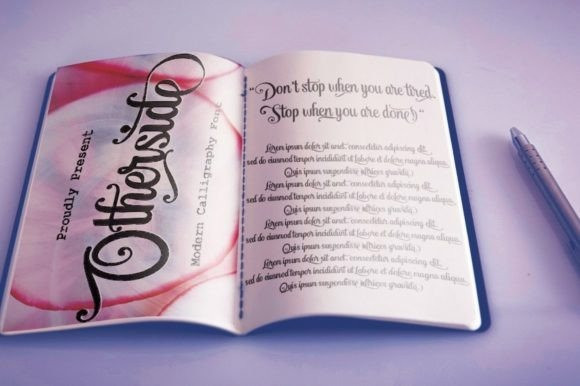 Proudly Present
Otherside
Modern Calligraphy Font
"Don't stop when you are tired.
Stop when you are done!"
Lorem ipsum dolor sit amet, consectetur adipiscing elit,
sed do eiusmod tempor incididunt ut labore et dolore magna aliqua.
Quis ipsum suspendisse ultrices gravida.
Lorem ipsum dolor sit amet, consectetur adipiscing elit,
sed do eiusmod tempor incididunt ut labore et dolore magna aliqua.
Quis ipsum suspendisse ultrices gravida.
Lorem ipsum dolor sit amet, consectetur adipiscing elit,
sed do eiusmod tempor incididunt ut labore et dolore magna aliqua.
Quis ipsum suspendisse ultrices gravida.
Lorem ipsum dolor sit amet, consectetur adipiscing elit,
sed do eiusmod tempor incididunt ut labore et dolore magna aliqua.
Quis ipsum suspendisse ultrices gravida.